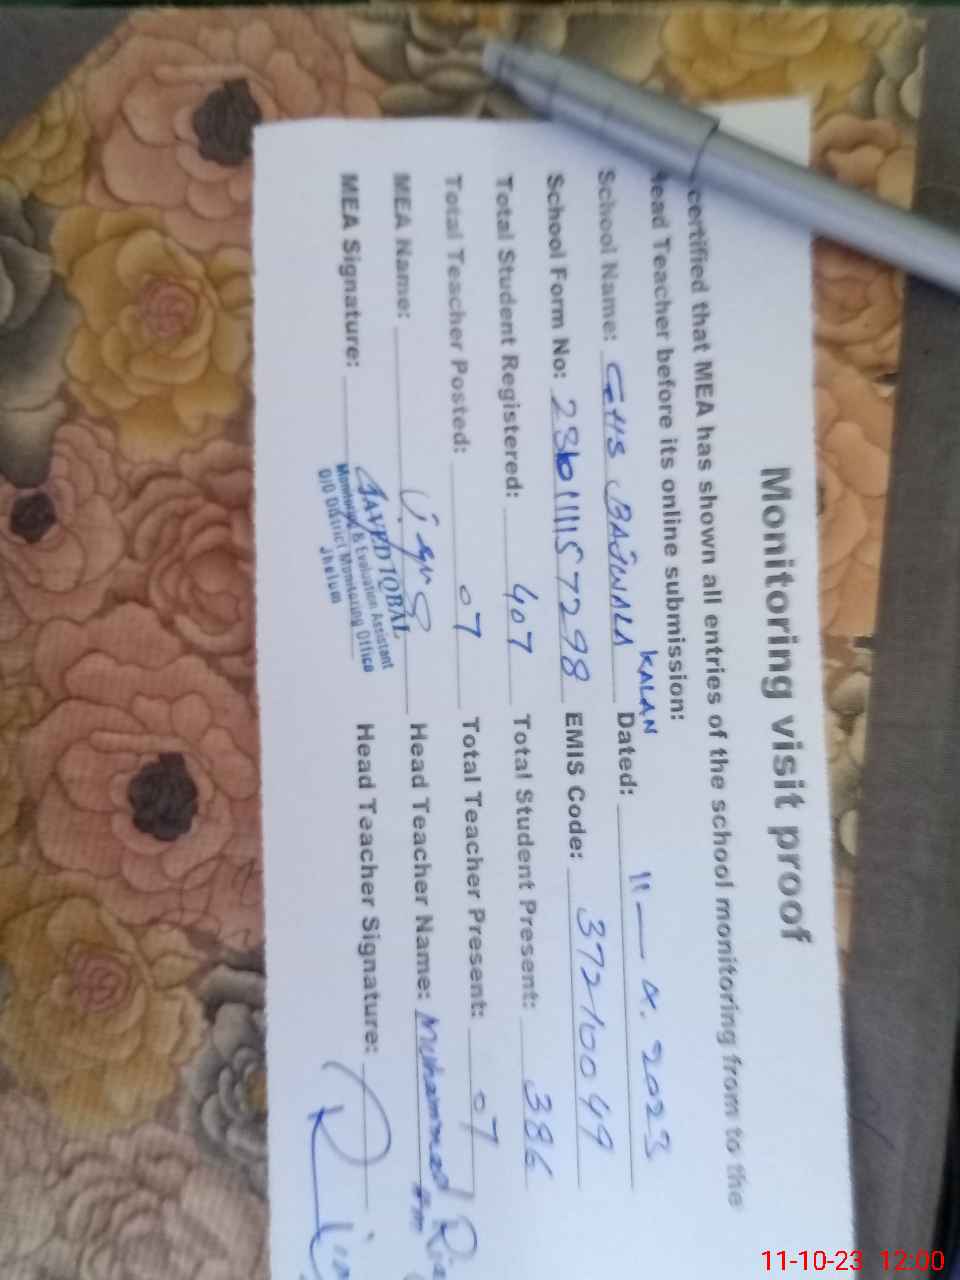 Monitoring visit proof
certified that MEA has shown all entries of the school monitoring from to the
ead Teacher before its online submission:
School Name: GHS BAJWALA KALAN Dated: 11 — X. 2023
School Form No: 236111157298 EMIS Code: 37210049
Total Student Registered: 407 Total Student Present: 386
Total Teacher Posted: 07 Total Teacher Present: 07
MEA Name: Head Teacher Name: Muhammad
MEA Signature: Head Teacher Signature:
JAVED IQBAL
Monitoring & Evaluation Assistant
O/O District Monitoring Office
Jhelum
11-10-23 12:00